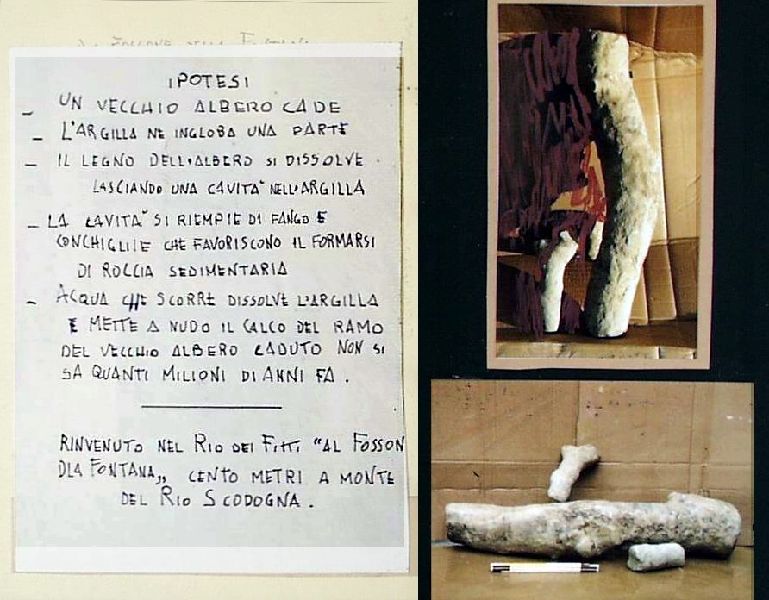 IPOTESI
- UN VECCHIO ALBERO CADE
- L'ARGILLA NE INGLOBA UNA PARTE
- IL LEGNO DELL'ALBERO SI DISSOLVE
LASCIANDO UNA CAVITA' NELL'ARGILLA
- LA CAVITA' SI RIEMPIE DI FANGO E
CONCHIGLIE CHE FAVORISCONO IL FORMARSI
DI ROCCIA SEDIMENTARIA
- ACQUA CHE SCORRE DISSOLVE L'ARGILLA
E METTE A NUDO IL CALCO DEL RAMO
DEL VECCHIO ALBERO CADUTO NON SI
SA QUANTI MILIONI DI ANNI FA.
RINVENUTO NEL RIO DEI FITTI "AL FOSSON
DLA FONTANA„ CENTO METRI A MONTE
DEL RIO SCODOGNA.